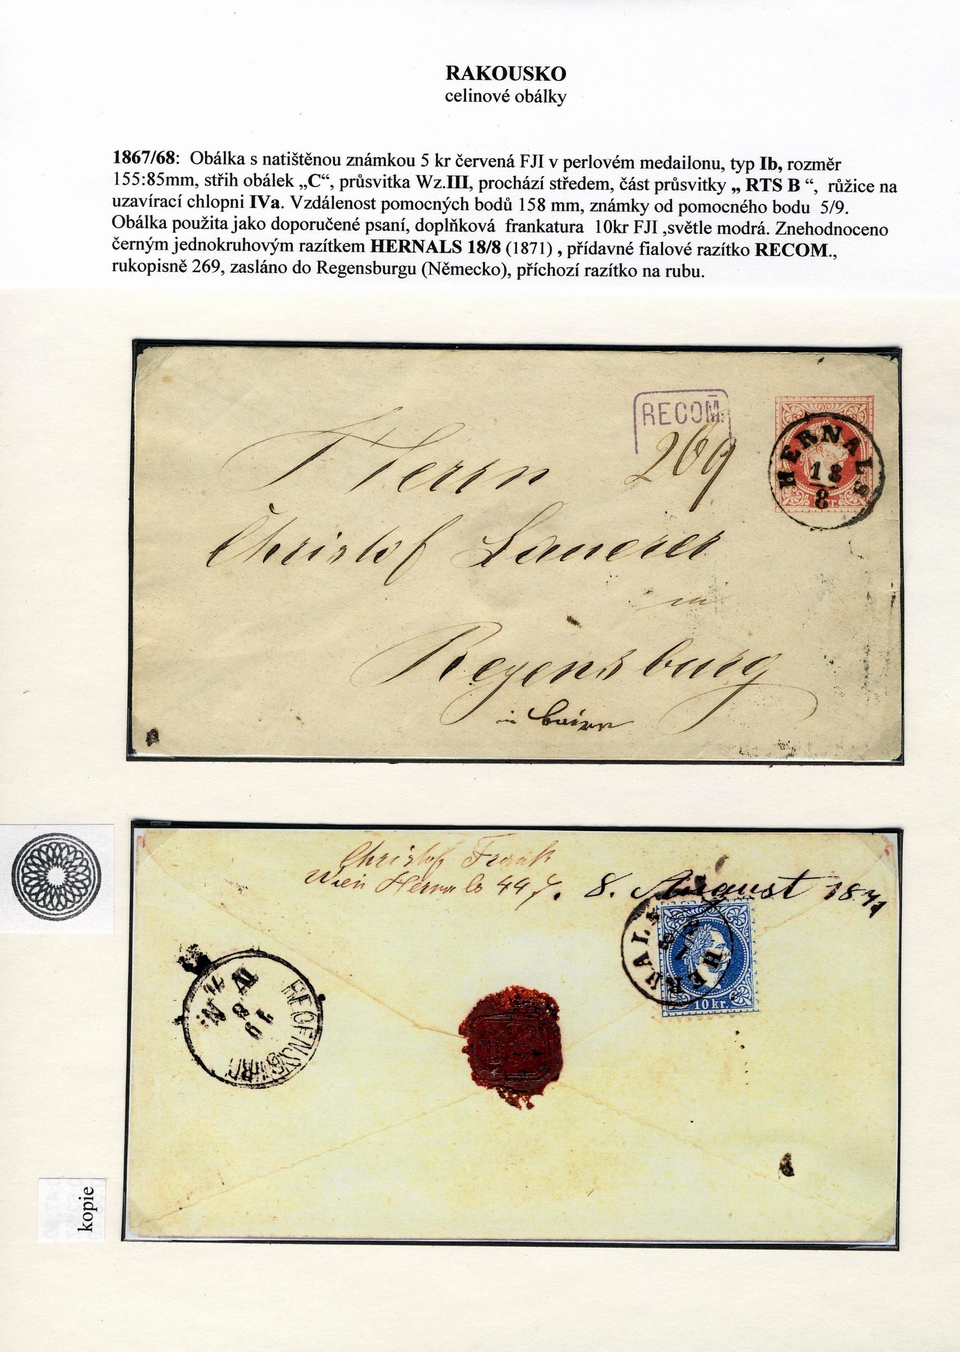 RAKOUSKO
celinové obálky
1867/68: Obálka s natištěnou známkou 5 kr červená FJI v perlovém medailonu, typ Ib, rozměr
155:85mm, střih obálek „C“, průsvitka Wz.III, prochází středem, část průsvitky „ RTS B “, růžice na
uzavírací chlopni IVa. Vzdálenost pomocných bodů 158 mm, známky od pomocného bodu 5/9.
Obálka použita jako doporučené psaní, doplňková frankatura 10kr FJI ,světle modrá. Znehodnoceno
černým jednokruhovým razítkem HERNALS 18/8 (1871) , přídavné fialové razítko RECOM.,
rukopisně 269, zasláno do Regensburgu (Německo), příchozí razítko na rubu.
RECOM.
269
HERNALS
18
8
Herrn
Christof Lauerer
in
Regensburg
in
Christof Frank
Wien Hernals 447. 8. August 1871
HERNALS
18
8
10 kr.
REGENSBURG
IV
19
8
kopie